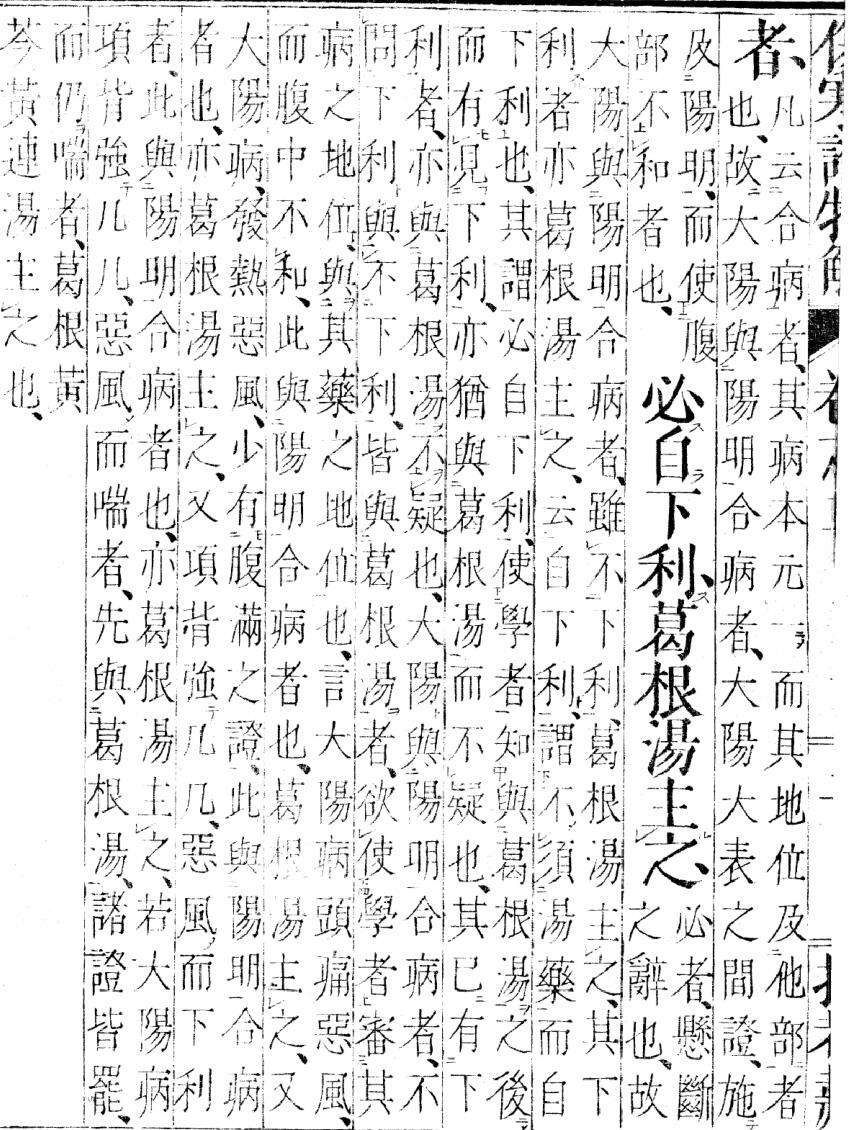 者、凡云合病者、其病本元一、而其地位及他部者
也、故大陽與陽明合病者、大陽大表之間證、施
及陽明、而使腹
部不和者也、
必自下利、葛根湯主之、必者、懸斷
之辭也、故
大陽與陽明合病者、雖不下利、葛根湯主之、其下
利者亦葛根湯主之、云自下利、謂不須湯藥而自
下利也、其謂必自下利、使學者知與葛根湯之後
而有見下利、亦猶與葛根湯而不疑也、其已有下
利者、亦與葛根湯不疑也、大陽與陽明合病者、不
問下利與不下利、皆與葛根湯者、欲使學者審其
病之地位、與其藥之地位也、言大陽病頭痛惡風、
而腹中不和、此與陽明合病者也、葛根湯主之、又
大陽病、發熱惡風、少有腹滿之證、此與陽明合病
者也、亦葛根湯主之、又項背強几几、惡風、而下利
者、此與陽明合病者也、亦葛根湯主之、若大陽病
項背強几几、惡風、而喘者、先與葛根湯、諸證皆罷、
而仍喘者、葛根黃
芩黃連湯主之也、